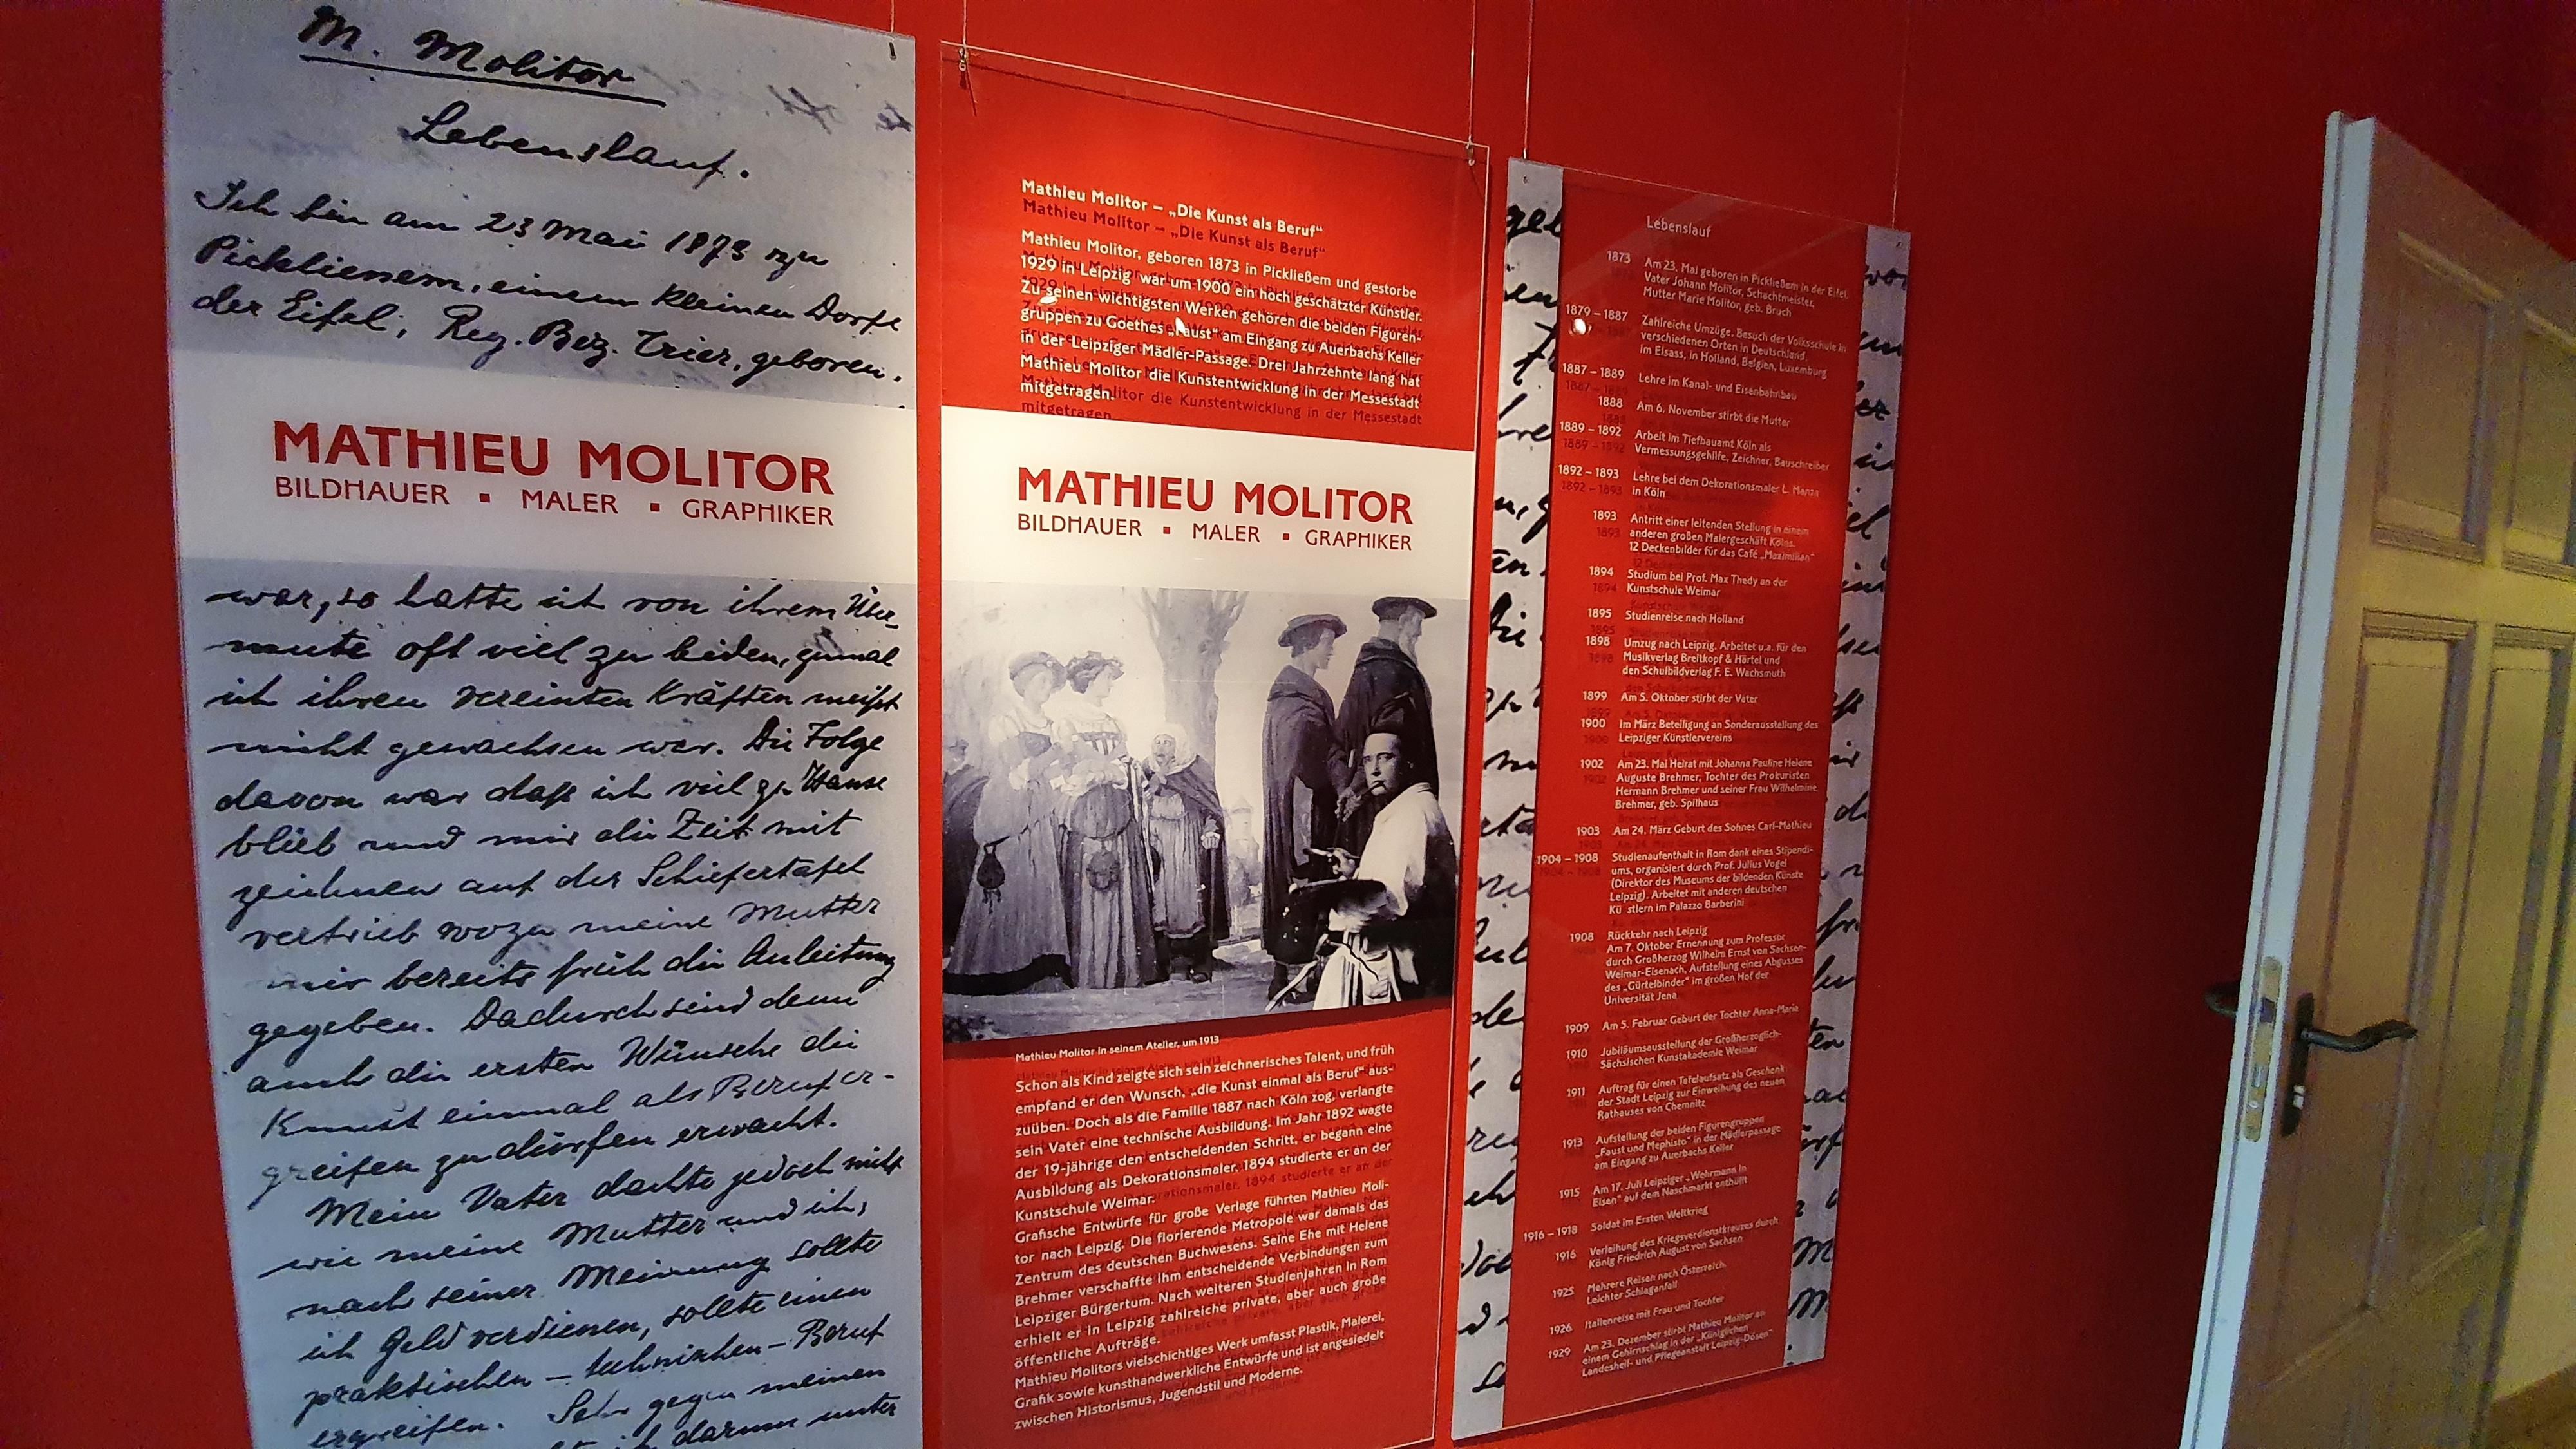 M. Molitor
Lebenslauf.
Ich bin am 23 Mai 1873 zu
Pickliessem, einem kleinen Dorfe
der Eifel, Reg. Bez. Trier, geboren.
MATHIEU MOLITOR
BILDHAUER ▪ MALER ▪ GRAPHIKER
war, so hatte ich von ihrem Über-
mute oft viel zu leiden, zumal
ich ihren vereinten Kräften meist
nicht gewachsen war. Die Folge
davon war daß ich viel zu Hause
blieb und mir die Zeit mit
zeichnen auf der Schiefertafel
vertrieb wozu meine Mutter
mir bereits früh die Anleitung
gegeben. Dadurch sind denn
auch die ersten Wünsche die
Kunst einmal als Beruf er-
greifen zu dürfen erwacht.
Mein Vater dachte jedoch nicht
wie meine Mutter und ich,
nach seiner Meinung sollte
ich Geld verdienen, sollte einen
praktischen – technischen – Beruf
ergreifen. Sehr gegen meinen
ich darum unter
Mathieu Molitor – „Die Kunst als Beruf“
Mathieu Molitor, geboren 1873 in Pickließem und gestorbe
1929 in Leipzig war um 1900 ein hoch geschätzter Künstler.
Zu seinen wichtigsten Werken gehören die beiden Figuren-
gruppen zu Goethes „Faust“ am Eingang zu Auerbachs Keller
in der Leipziger Mädler-Passage. Drei Jahrzehnte lang hat
Mathieu Molitor die Kunstentwicklung in der Messestadt
mitgetragen.
MATHIEU MOLITOR
BILDHAUER ▪ MALER ▪ GRAPHIKER
Mathieu Molitor in seinem Atelier, um 1913
Schon als Kind zeigte sich sein zeichnerisches Talent, und früh
empfand er den Wunsch, „die Kunst einmal als Beruf“ aus-
zuüben. Doch als die Familie 1887 nach Köln zog, verlangte
sein Vater eine technische Ausbildung. Im Jahr 1892 wagte
der 19-jährige den entscheidenden Schritt, er begann eine
Ausbildung als Dekorationsmaler, 1894 studierte er an der
Kunstschule Weimar.
Grafische Entwürfe für große Verlage führten Mathieu Moli-
tor nach Leipzig. Die florierende Metropole war damals das
Zentrum des deutschen Buchwesens. Seine Ehe mit Helene
Brehmer verschaffte ihm entscheidende Verbindungen zum
Leipziger Bürgertum. Nach weiteren Studienjahren in Rom
erhielt er in Leipzig zahlreiche private, aber auch große
öffentliche Aufträge.
Mathieu Molitors vielschichtiges Werk umfasst Plastik, Malerei,
Grafik sowie kunsthandwerkliche Entwürfe und ist angesiedelt
zwischen Historismus, Jugendstil und Moderne.
Lebenslauf
1873 Am 23. Mai geboren in Pickließem in der Eifel,
Vater Johann Molitor, Schachtmeister,
Mutter Marie Molitor, geb. Bruch
1879 – 1887 Zahlreiche Umzüge. Besuch der Volksschule in
verschiedenen Orten in Deutschland,
im Elsass, in Holland, Belgien, Luxemburg
1887 – 1889 Lehre im Kanal- und Eisenbahnbau
1888 Am 6. November stirbt die Mutter
1889 – 1892 Arbeit im Tiefbauamt Köln als
Vermessungsgehilfe, Zeichner, Bauschreiber
1892 – 1893 Lehre bei dem Dekorationsmaler L. Manza
in Köln
1893 Antritt einer leitenden Stellung in einem
anderen großen Malergeschäft Kölns.
12 Deckenbilder für das Café „Maximilian“
1894 Studium bei Prof. Max Thedy an der
Kunstschule Weimar
1895 Studienreise nach Holland
1898 Umzug nach Leipzig. Arbeitet u.a. für den
Musikverlag Breitkopf & Härtel und
den Schulbildverlag F. E. Wachsmuth
1899 Am 5. Oktober stirbt der Vater
1900 Im März Beteiligung an Sonderausstellung des
Leipziger Künstlervereins
1902 Am 23. Mai Heirat mit Johanna Pauline Helene
Auguste Brehmer, Tochter des Prokuristen
Hermann Brehmer und seiner Frau Wilhelmine
Brehmer, geb. Spilhaus
1903 Am 24. März Geburt des Sohnes Carl-Mathieu
1904 – 1908 Studienaufenthalt in Rom dank eines Stipendi-
ums, organisiert durch Prof. Julius Vogel
(Direktor des Museums der bildenden Künste
Leipzig). Arbeitet mit anderen deutschen
Kü stlern im Palazzo Barberini
1908 Rückkehr nach Leipzig
Am 7. Oktober Ernennung zum Professor
durch Großherzog Wilhelm Ernst von Sachsen-
Weimar-Eisenach, Aufstellung eines Abgusses
des „Gürtelbinder“ im großen Hof der
Universität Jena
1909 Am 5. Februar Geburt der Tochter Anna-Maria
1910 Jubiläumsausstellung der Großherzoglich-
Sächsischen Kunstakademie Weimar
1911 Auftrag für einen Tafelaufsatz als Geschenk
der Stadt Leipzig zur Einweihung des neuen
Rathauses von Chemnitz
1913 Aufstellung der beiden Figurengruppen
„Faust und Mephisto“ in der Mädlerpassage
am Eingang zu Auerbachs Keller
1915 Am 17. Juli Leipziger „Wehrmann in
Eisen“ auf dem Naschmarkt enthüllt
1916 – 1918 Soldat im Ersten Weltkrieg
1916 Verleihung des Kriegsverdienstkreuzes durch
König Friedrich August von Sachsen
1925 Mehrere Reisen nach Österreich.
Leichter Schlaganfall
1926 Italienreise mit Frau und Tochter
1929 Am 23. Dezember stirbt Mathieu Molitor an
einem Gehirnschlag in der „Königlichen
Landesheil- und Pflegeanstalt Leipzig-Dösen“